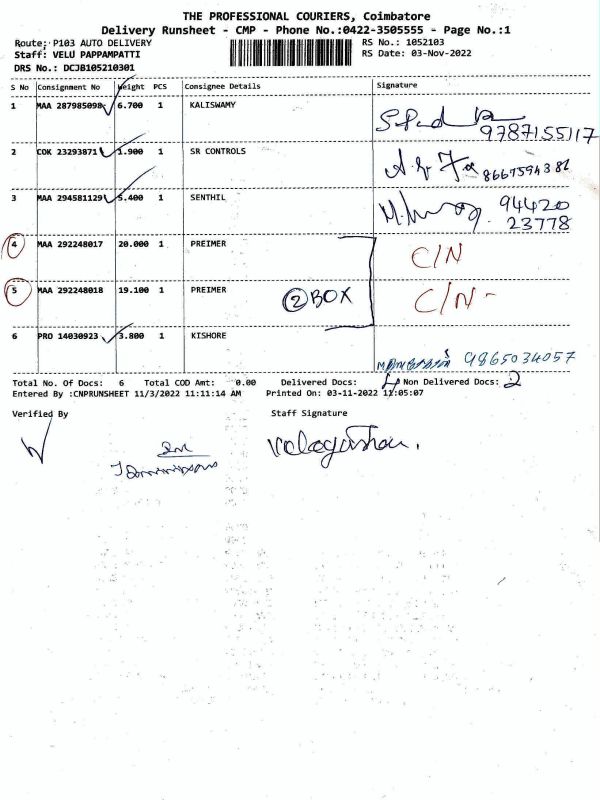 THE PROFESSIONAL COURIERS, Coimbatore
Delivery Runsheet - CMP - Phone No.:0422-3505555 - Page No.:1
Route: P103 AUTO DELIVERY
RS No.: 1052103
Staff: VELU PAPPAMPATTI
RS Date: 03-Nov-2022
DRS No.: DCJB105210301
S No Consignment No Weight PCS Consignee Details Signature
1 MAA 287985098 6.700 1 KALISWAMY
9787155117
2 COK 23293871 1.900 1 SR CONTROLS
8667594382
3 MAA 294581129 5.400 1 SENTHIL
94420
23778
4 MAA 292248017 20.000 1 PREIMER C/N
5 MAA 292248018 19.100 1 PREIMER 2 BOX C/N -
6 PRO 14030923 3.800 1 KISHORE
9865034057
Total No. Of Docs: 6 Total COD Amt: 0.00 Delivered Docs: 4 Non Delivered Docs: 2
Entered By :CNPRUNSHEET 11/3/2022 11:11:14 AM Printed On: 03-11-2022 11:05:07
Verified By Staff Signature